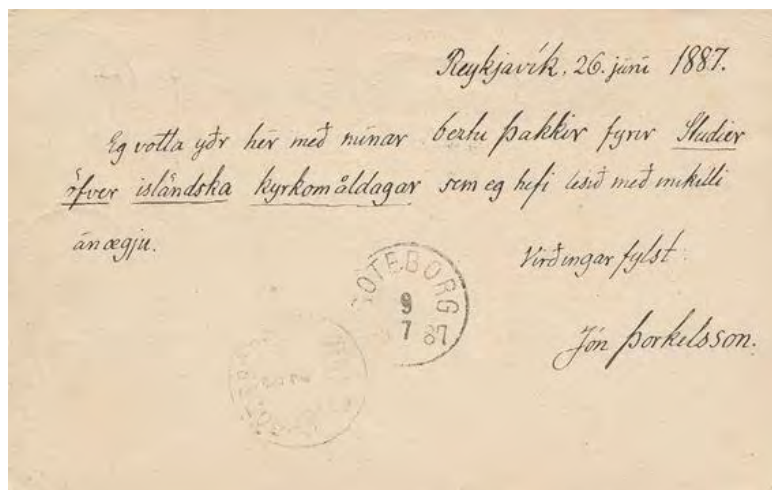 Reykjavík, 26. júní 1887.
Eg votta yðr hér með mínar beztu þakkir fyrir Studier
öfver isländska kyrkomåldagar sem eg hefi lesið með mikilli
ánægju.
Virðingarfylst
Jón Þorkelsson.
GÖTEBORG
9
7 87